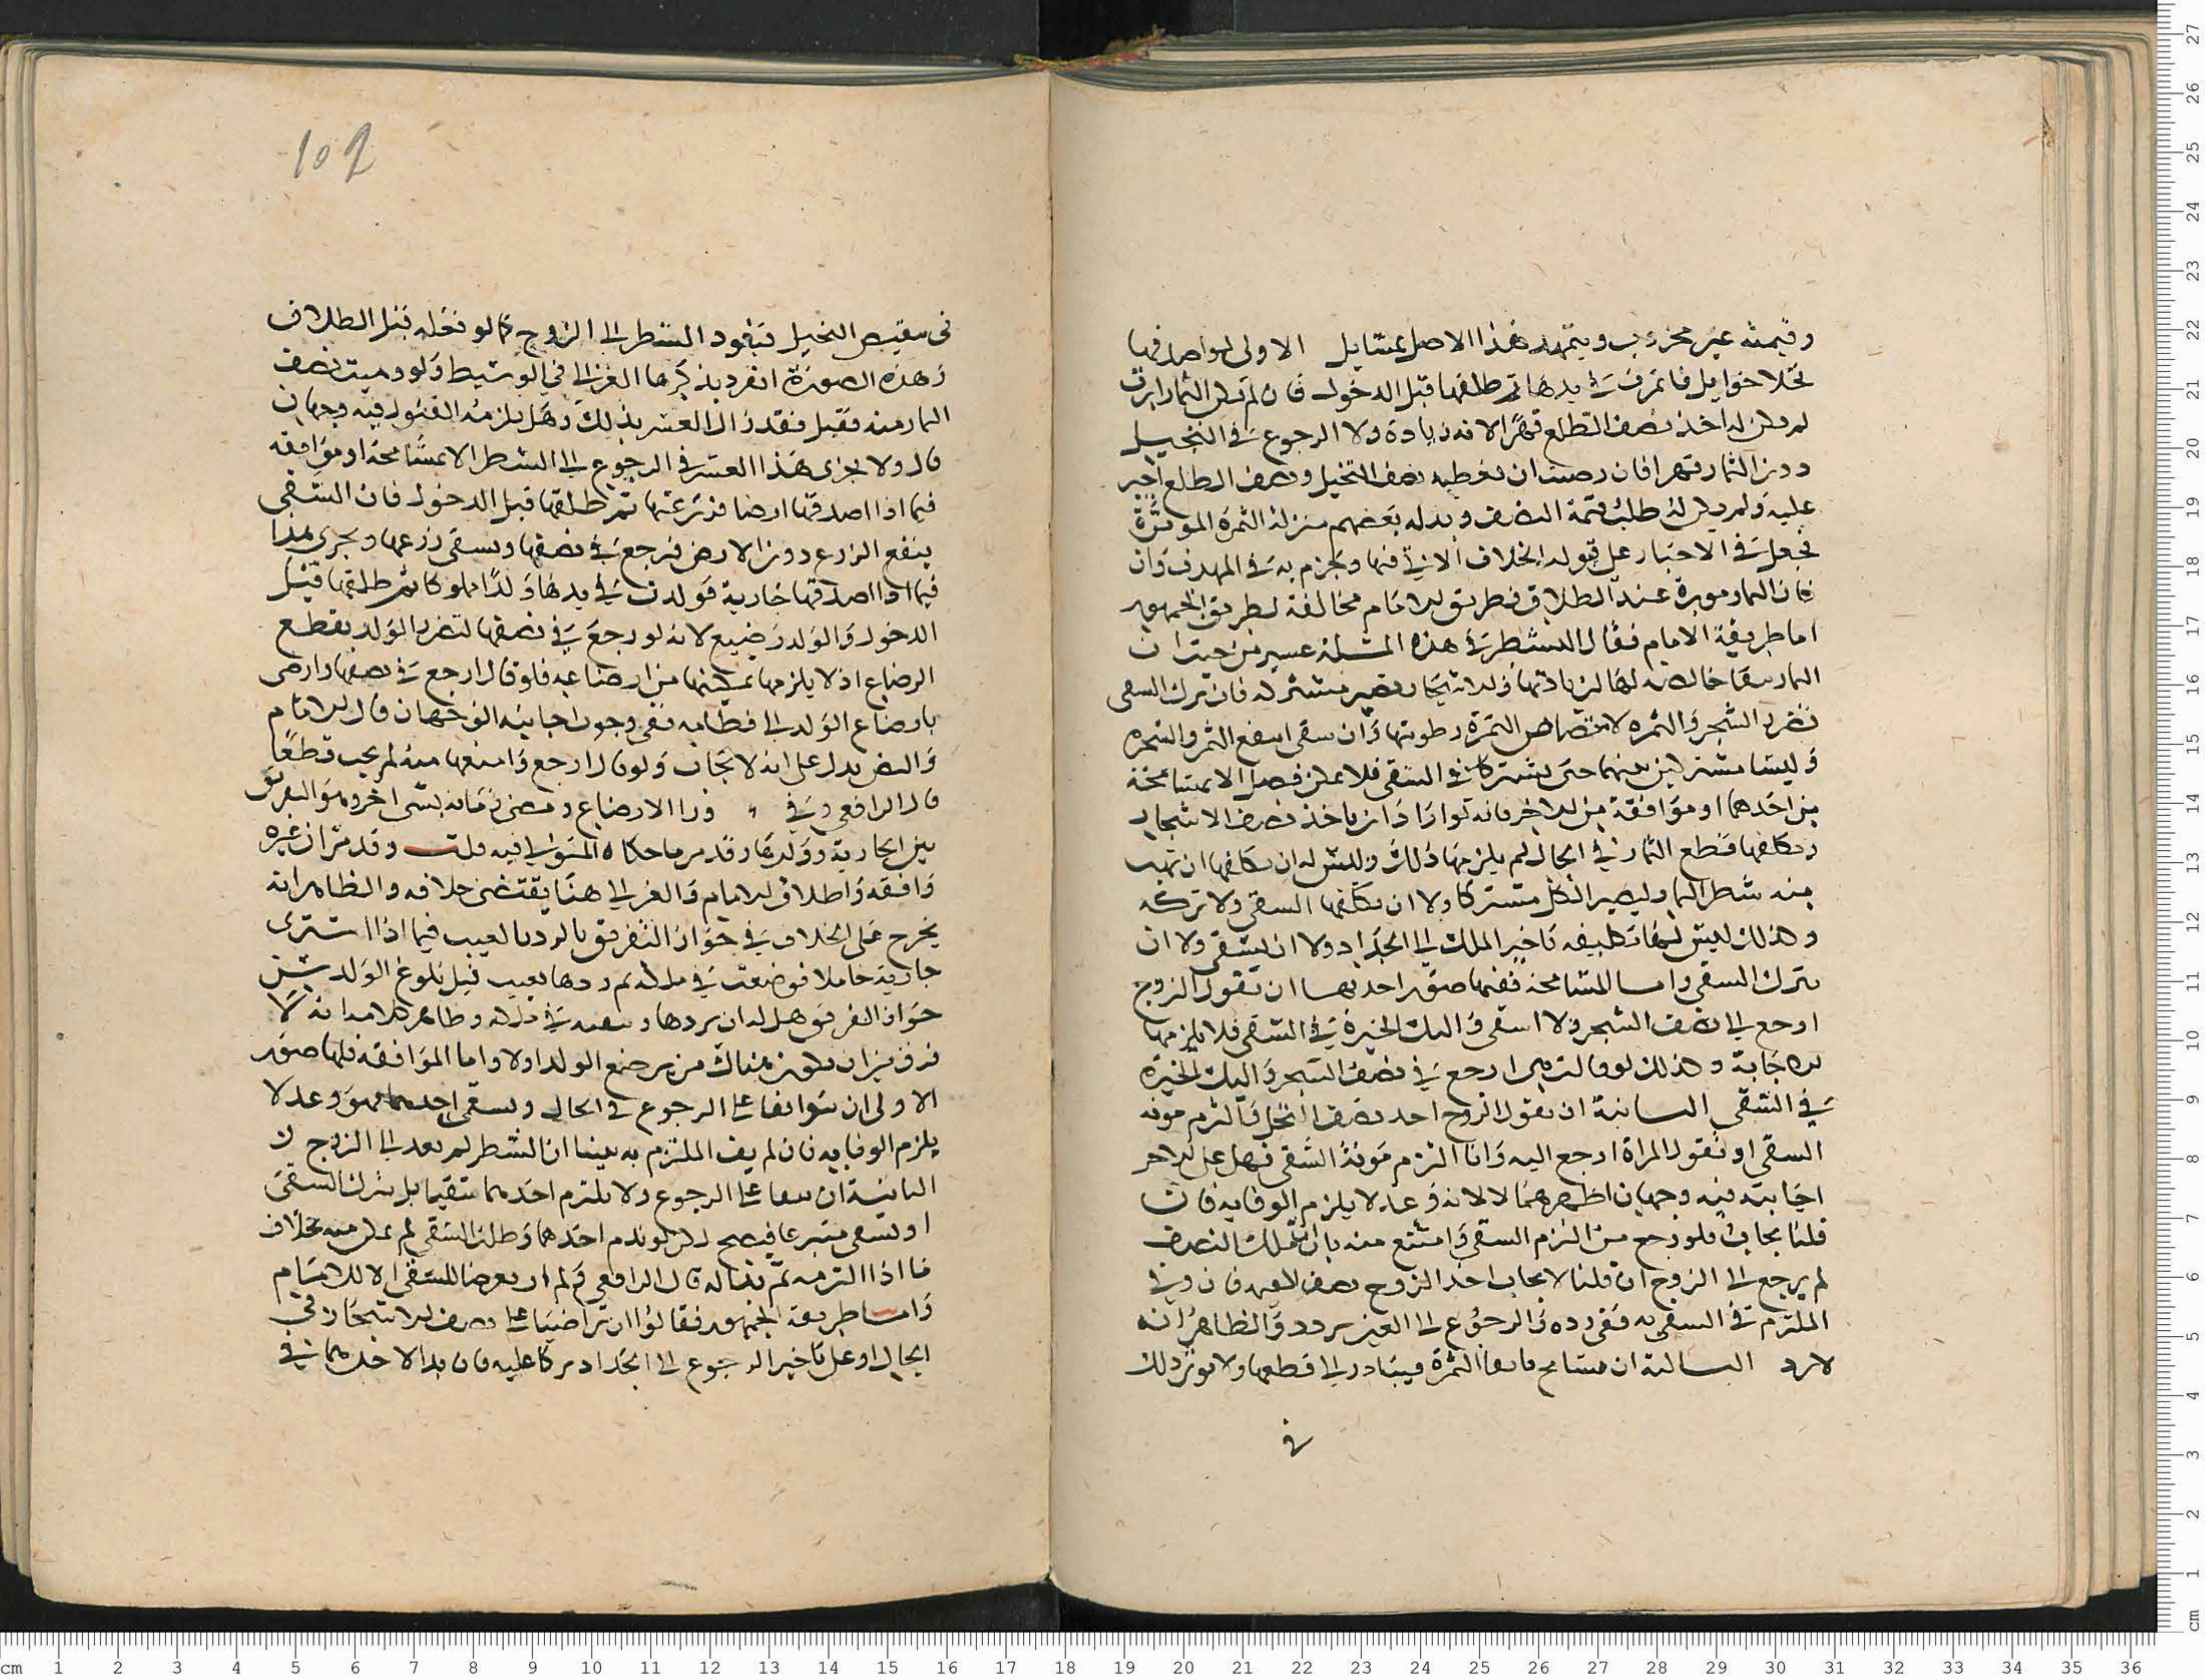 وقيمته غير محزوب ويتمهد هذا الاصل بمسايل الاولى لو اصدقها
نخلا حوايل فاثمرت في يدها ثم طلقها قبل الدخول فان لم تكن الثمار ابرت
لم يكن له اخذ نصف الطلع قهرا لانه زيادة ولا الرجوع في النخيل
دون الثمار قهرا فان رضيت ان تعطيه نصف النخيل ونصف الطلع اجبر
عليه ولم يكن له طلب قيمة النصف وبدله بعضهم منزلة الثمرة الموبرة
فجعل في الاجبار على قبوله الخلاف الاتي فيها وجزم به في المهذب وان
كان الثمار موبرة عند الطلاق فطريق الامام مخالفة لطريق الجمهور
اما طريقة الامام فقال التشطر في هذه المسلة عسير من حيث ان
الثمار بقا خالصه لها لزيادتها والاشجار تصير مشتركه فان ترك السقي
تضرر الشجر والثمره لامتصاص الثمرة رطوبتها وان سقى انتفع الثمر والشجره
وليسا مشتركين بينهما حتى يشتركا في السقي فلا يمكن فصل الا بمسامحة
من احدهما او موافقة من الاخر فانه لو اراد ان ياخذ نصف الاشجار
ويكلفها قطع الثمار في الحال لم يلزمها ذلك وليس له ان يكلفها ان تهب
منه شطر الثمار ليصير الكل مشتركا ولا ان يكلفها السقي ولا تركه
وكذلك ليس لها تكليفه تاخير الملك الى الجداد ولا ان يسقي ولا ان
يترك السقي واما المسامحة ففيها صور احديها ان تقول الزوج
ارجع الى نصف الشجر ولا اسقي واليك الخيرة في السقي فلا يلزمها
الاجابة وكذلك لو قالت هي ارجع في نصف الشجر واليك الخيرة
في السقي الثانية ان يقول الزوج اخذ نصف النخل والتزم مونه
السقي او تقول المراة ارجع اليه وانا التزم مونة السقي فهل على الاخر
اجابته فيه وجهان اظهرهما لا لانه وعد لا يلزم الوفا به فان
قلنا يجاب فلو رجع من التزم السقي وامتنع منه بان ان ملك النصف
لم يرجع الى الزوج ان قلنا لا يجاب اخذ الزوج نصف القيمة فان وفى
الملتزم في السقي به ففي رده والرجوع الى العين تردد والظاهر انه
لا يرد الثالثة ان تسامح مالكة الثمرة فيبادر الى قطعها ولا يوثر ذلك
في
102
في تنقيص النخيل فيعود الشطر الى الزوج كما لو فعله قبل الطلاق
وهذه الصورة انفرد بذكرها الغزالي في الوسيط ولو وهبت نصف
الثمار منه فقبل فقد زال العسر بذلك وهل يلزمه القبول فيه وجهان
قال ولا يجرى هذا العسر في الرجوع الى الشطر الا بمسامحة او موافقه
فيما اذا اصدقها ارضا فزرعتها ثم طلقها قبل الدخول فان السقي
ينفع الزرع دون الارض فيرجع في نصفها ويسقي زرعها ويجري هذا
فيما اذا اصدقها جارية فولدت في يدها ولدا مملوكا ثم طلقها قبل
الدخول والولد رضيع لانه لو رجع في نصفها لتضرر الولد بقطع
الرضاع اذ لا يلزمها تمكينها من ارضاعه فلو قال ارجع في نصفها وارضى
بارضاع الولد الى فطامه ففي وجوب اجابته الوجهان قال الامام
والنص يدل على انه لا يجاب ولو قال ارجع وامنعها منه لم يجب قطعا
قال الرافعي وفي ورا الارضاع ومضى زمانه لشي اخر وهو التفريق
بين الجارية وولدها وقد مر ما حكاه المتولي فيه قلت وقد مر ان غيره
وافقه واطلاق الامام والغزالي هنا يقتضي خلافه والظاهر انه
يخرج على الخلاف في جواز التفريق بالرد بالعيب فيما اذا اشترى
جارية حاملا فوضعت في ملكه ثم ردها بعيب قبل بلوغ الولد سن
جواز التفريق هل له ان يردها وسعيه في ذلك وظاهر كلامه انه لا
فرق بين ان يكون هناك من يرضع الولد او لا واما الموافقة فلها صور
الاولى ان يتوافقا على الرجوع في الحال ويسقي احدهما فهو وعد لا
يلزم الوفا به فان لم يف الملتزم به بينا ان الشطر لم يعد الى الزوج ان
الثانية ان يتفقا على الرجوع ولا يلتزم احدهما سقيا بل بترك السقي
او يسقي متبرعا فيصح ذلك ولو ندم احدهما وطلب السقي لم يمكن منه بخلاف
ما اذا التزمه ثم بدا له قال الرافعي ولم ار تعرضا للسقي الا للامام
واما طريقة الجمهور فقالوا ان تراضيا على نصف الاشجار في
الحال او على تاخير الرجوع الى الجداد تركا عليه فان بدا لاحدهما في